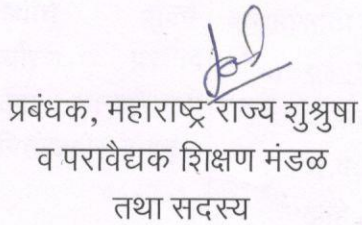 प्रबंधक, महाराष्ट्र राज्य शुश्रुषा
व परावैद्यक शिक्षण मंडळ
तथा सदस्य